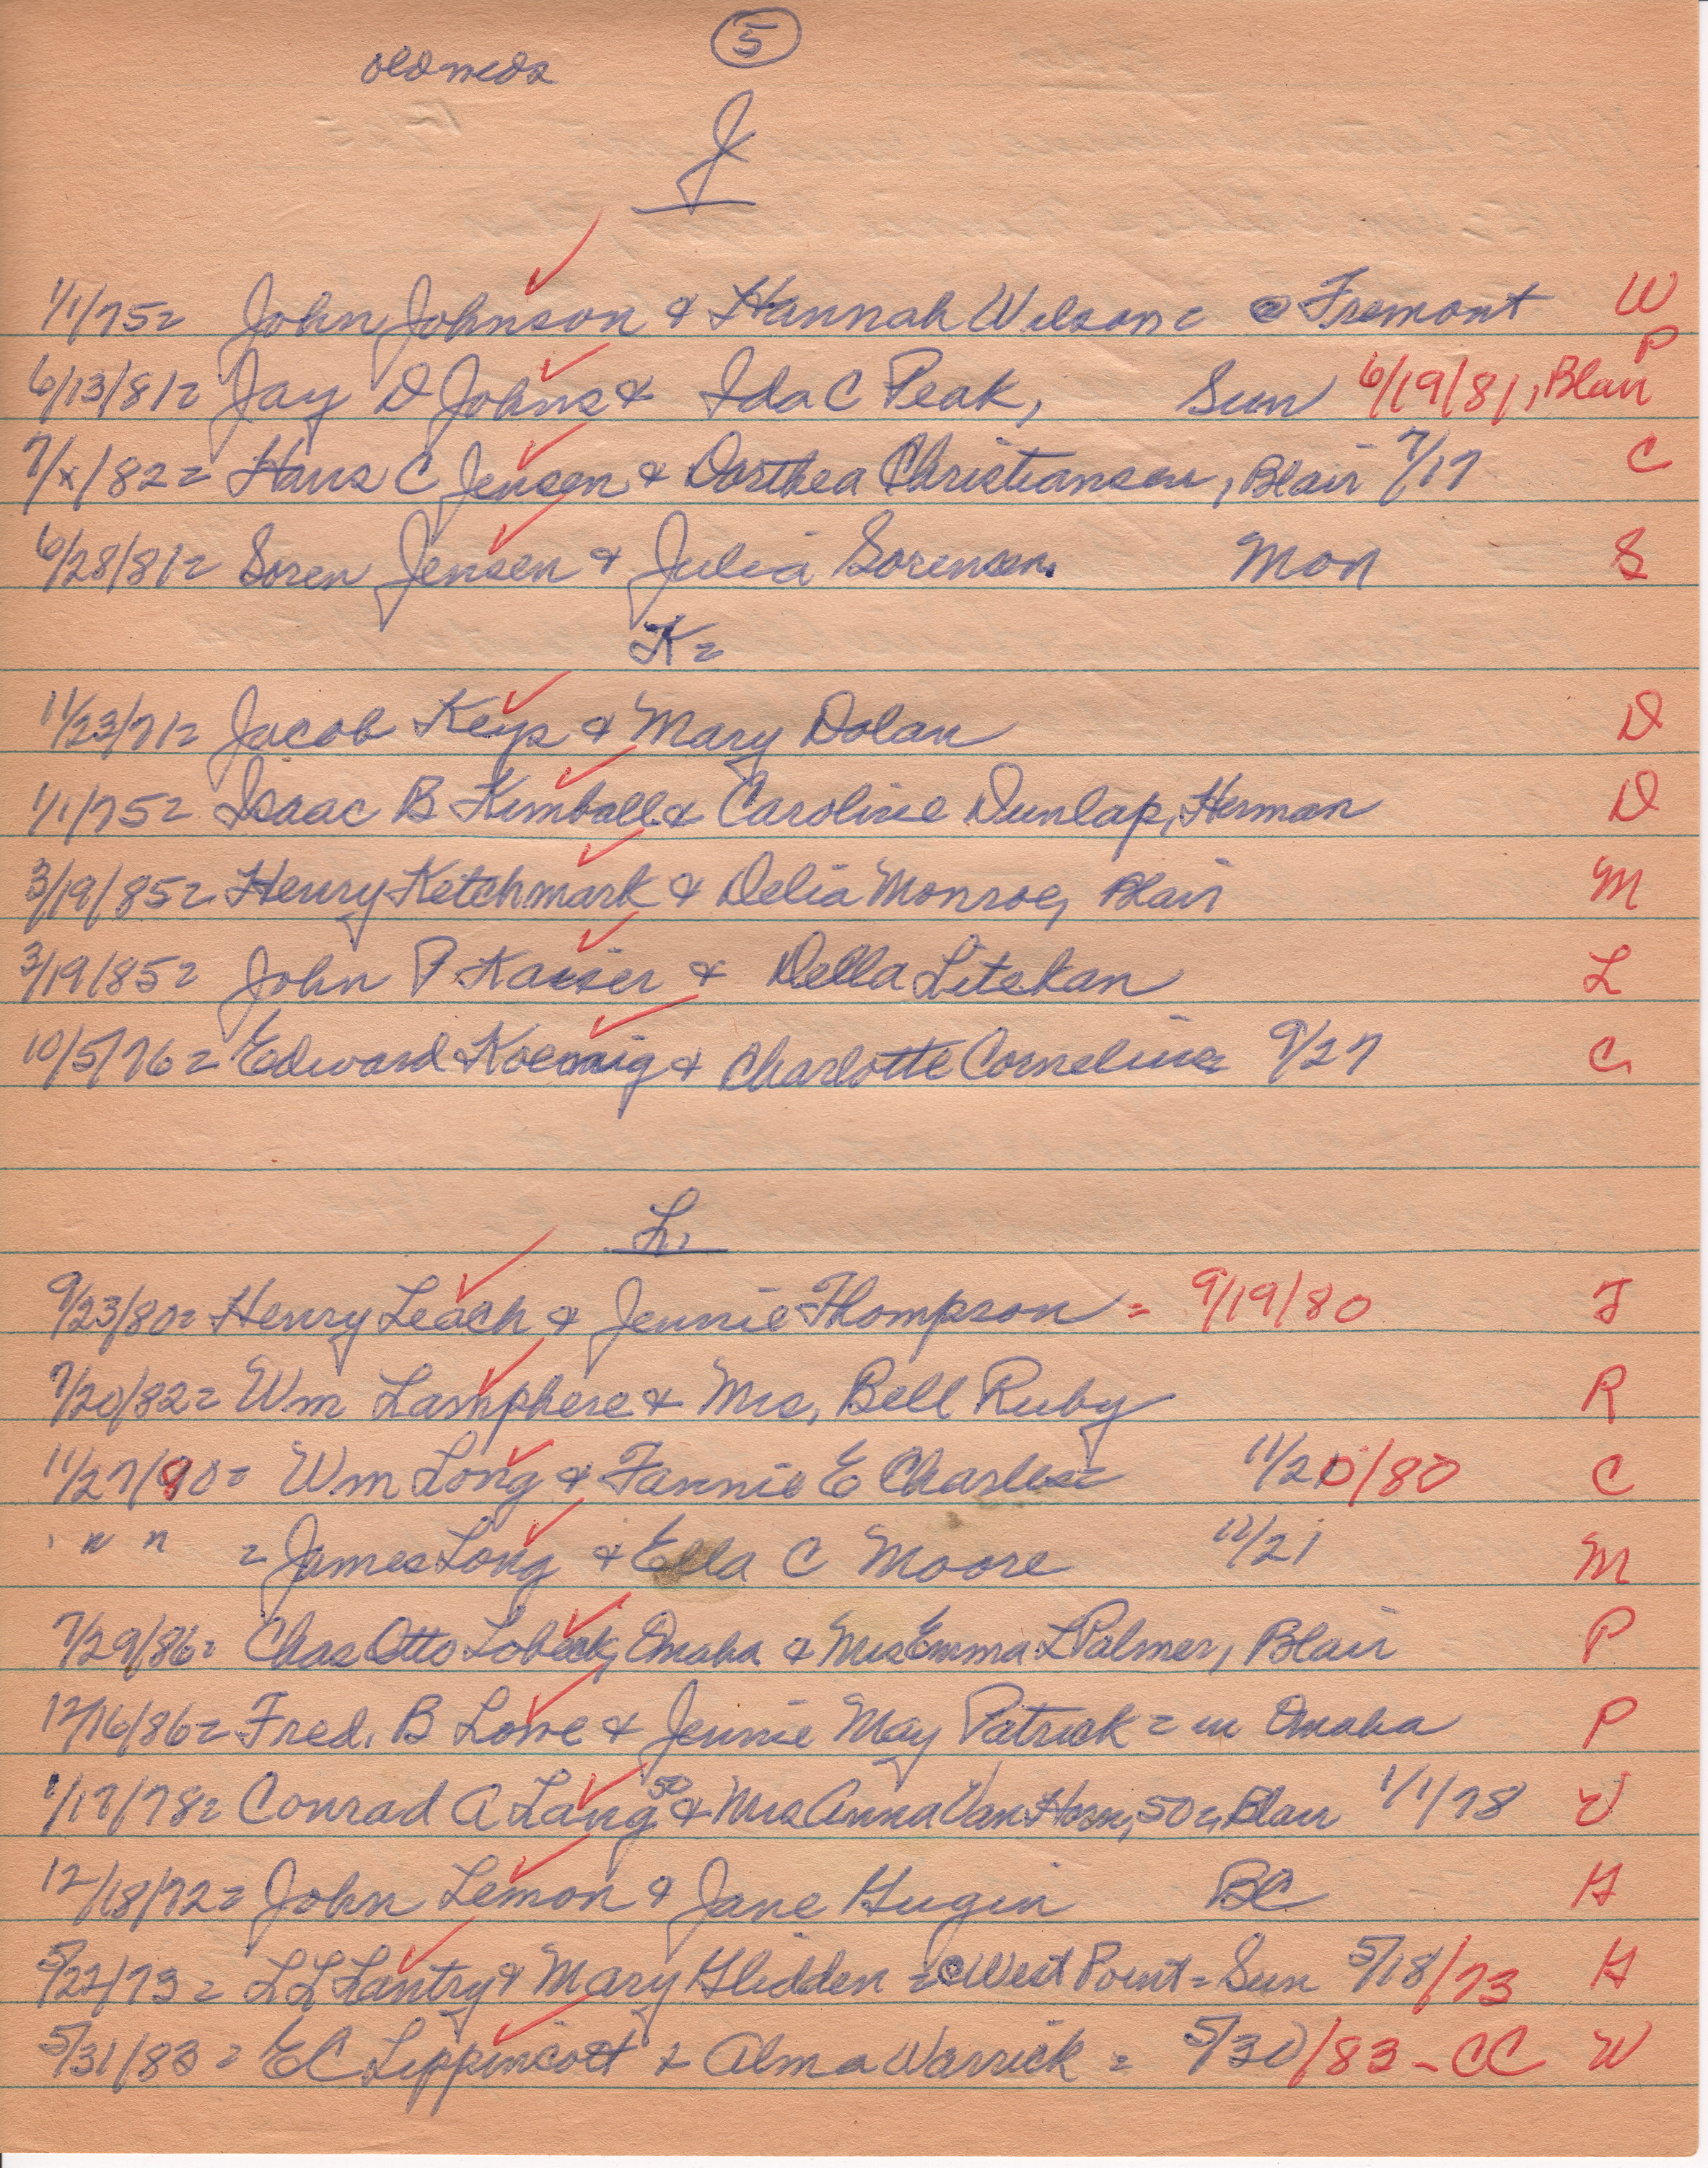 5
old neds
J
1/1/75= John Johnson & Hannah Wilson @ Fremont W
6/13/81= Jay D Johns & Ida C Peak, Sun 6/19/81, Blair P
7/x/82= Hans C Jensen & Dorthea Christiansen, Blair 7/17 C
6/28/81= Soren Jensen & Julia Sorensen. Mon S
K=
11/23/71= Jacob Keys & Mary Dolan D
1/1/75= Isaac B Kimball & Caroline Dunlap, Herman D
3/19/85= Henry Ketchmark & Delia Monroe, Blair M
3/19/85= John P Kaiser & Della Litekan L
10/5/76= Edward Koennig & Charlotte Cornelius 9/27 C
L.
9/23/80= Henry Leach & Jennie Thompson = 9/19/80 T
7/20/82= Wm Lamphere & Mrs, Bell Ruby R
11/27/80= Wm Long & Fannie E Charles 11/20/80 C
" " " = James Long & Ella C Moore 11/21 M
7/29/86= Chas Otto Lobeck, Omaha & Mrs Emma L Palmer, Blair P
12/16/86= Fred. B Lowe & Jennie May Patrick = in Omaha P
1/17/78= Conrad A Lang 50 & Mrs Anna Van Horn, 50=, Blair 1/1/78 V
12/18/72= John Lemon & Jane Gugin BC G
5/22/73= L L Lantry & Mary Glidden = @ West Point = Sun 5/18/73 G
5/31/83= EC Lippincott & Alma Warrick = 5/30/83 - CC W